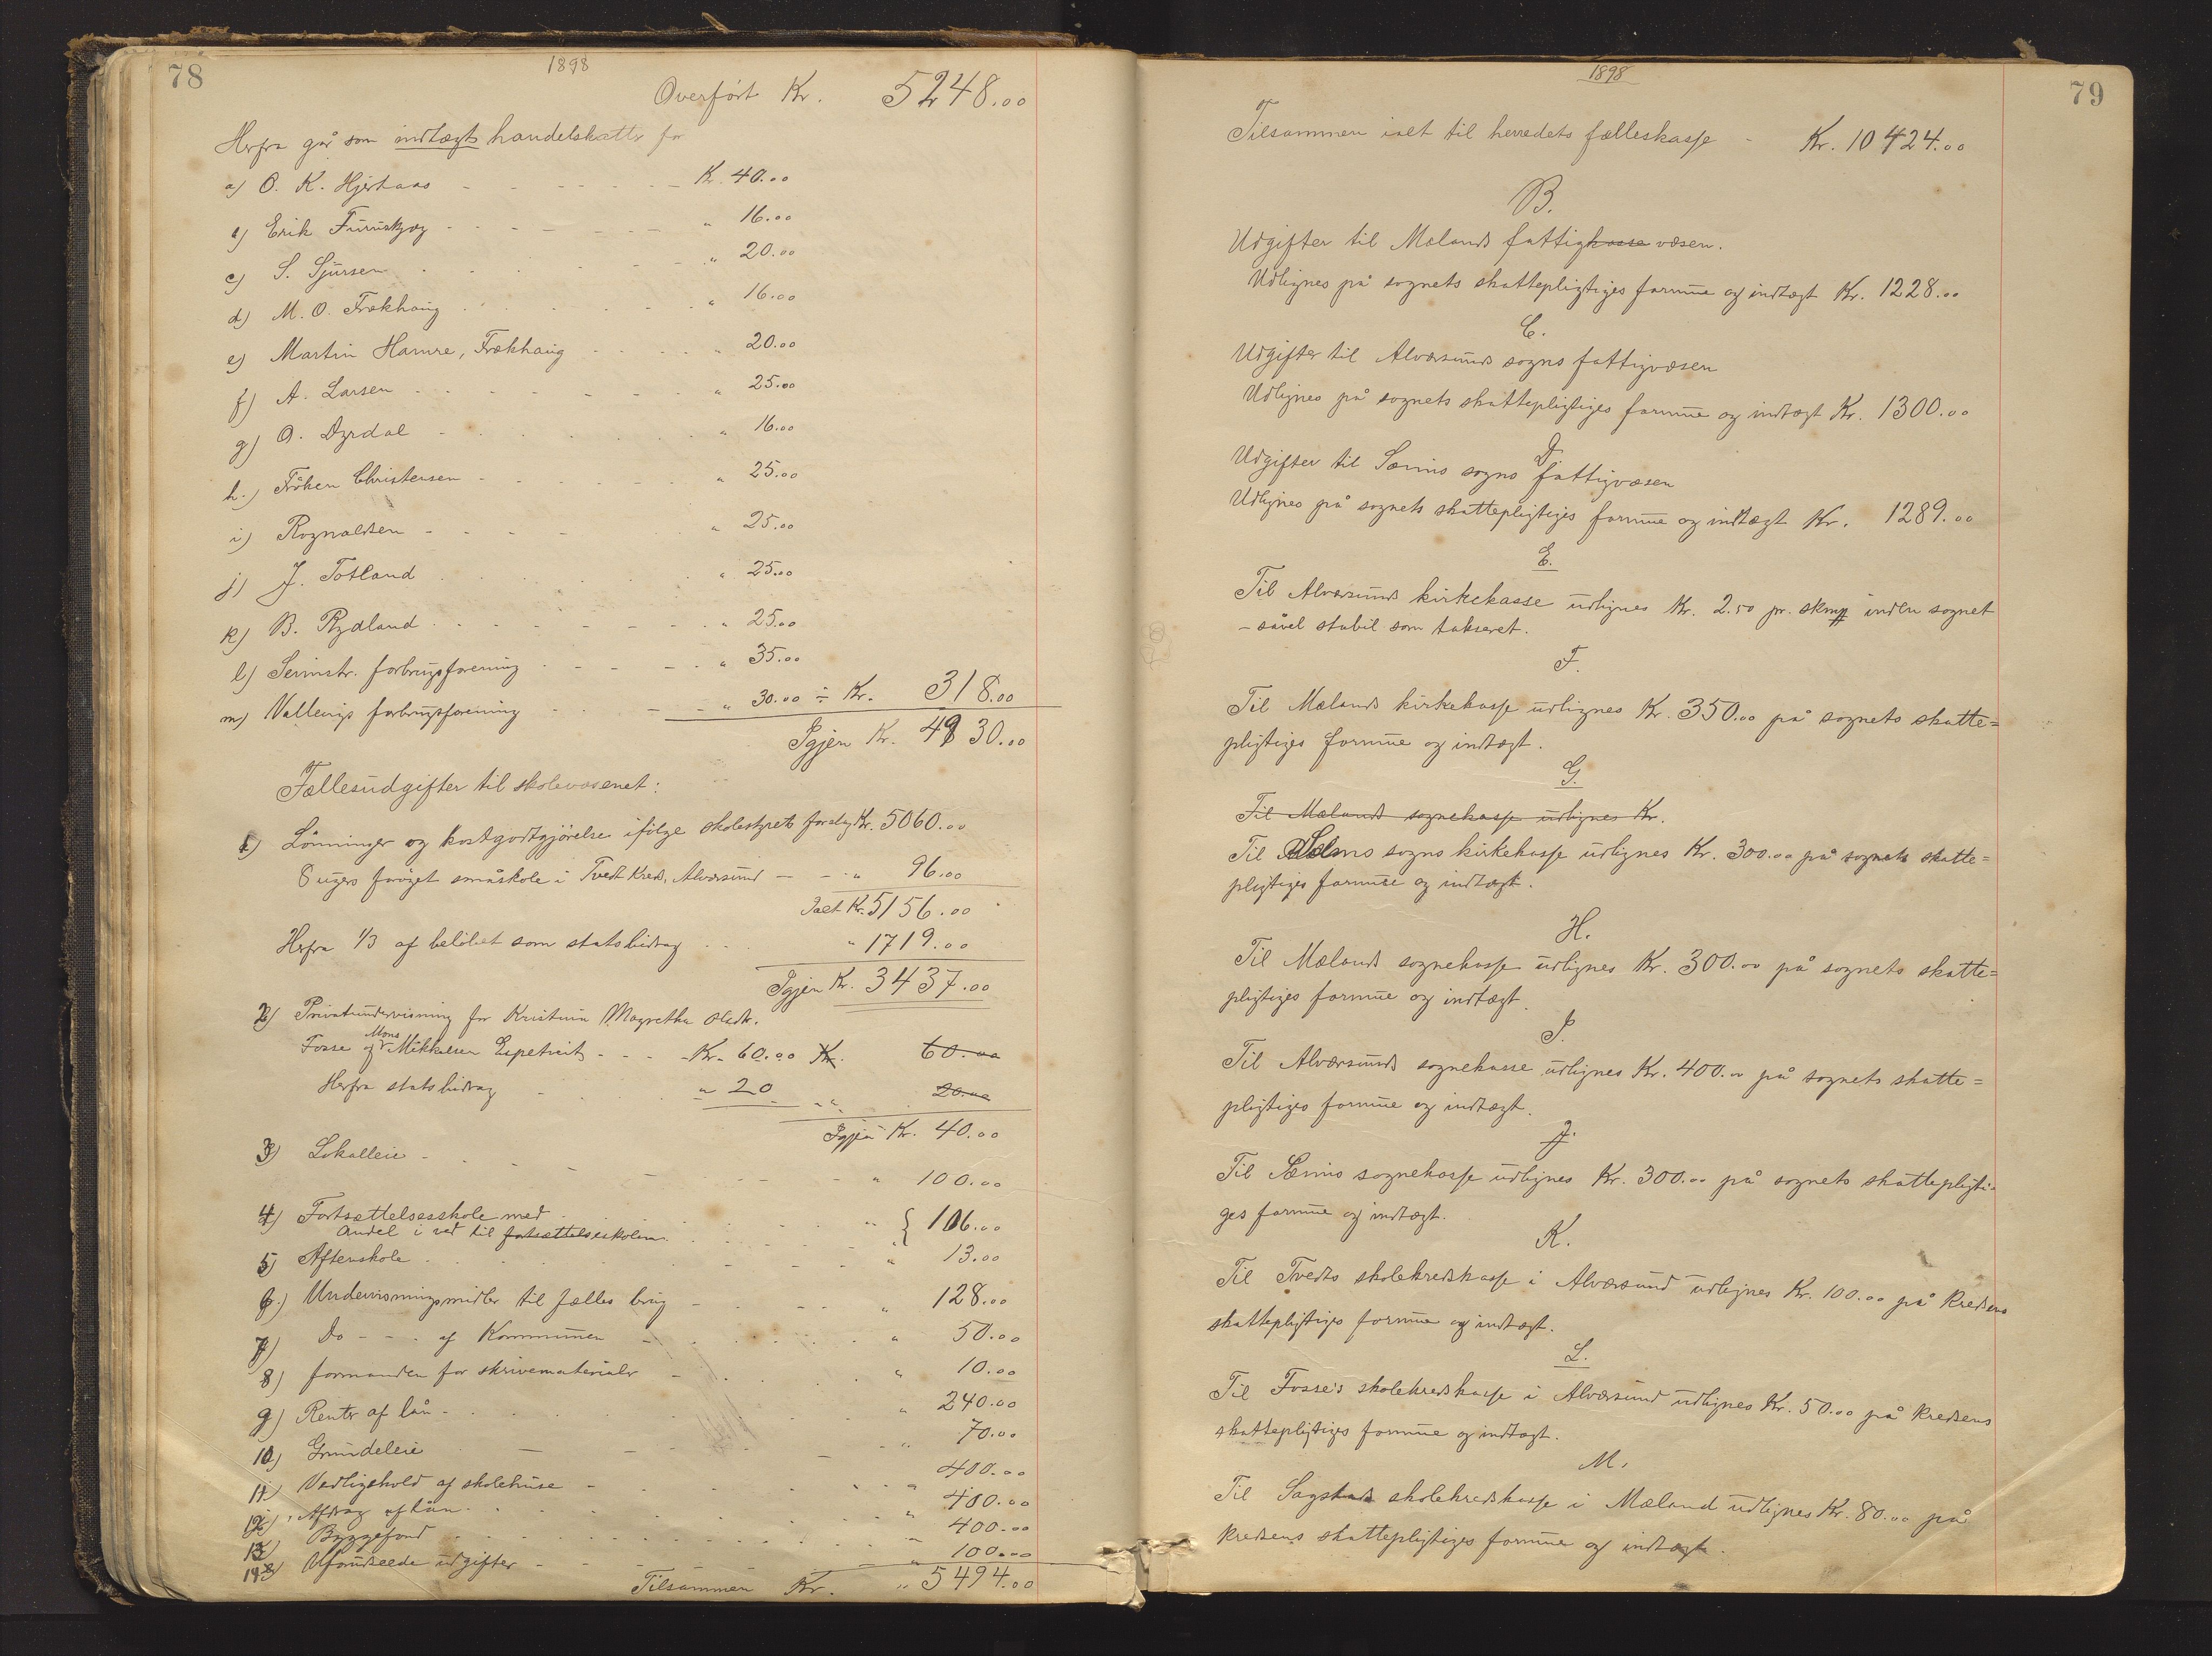 78
1898
Overført Kr. 5248.00
Herfra går som indtægt handelskatter for
a) O. K. Hjertaas - - - Kr. 40.00
b) Erik Furuskjæg - - - " 16.00
c) S. Sjursen - - - " 20.00
d) M. O. Frækhaug - - - " 16.00
e) Martin Hamre, Frækhaug - - - " 20.00
f) A. Larsen - - - " 25.00
g) O. Dyrdal - - - " 16.00
h.) Frøken Christensen - - - " 25.00
i) Rognaldsen - - - " 25.00
j) J. Totland " 25.00
k) B. Rydland - - - " 25.00
l) Seimstr. forbrugsforening - - - " 35.00
m) forbrugsforening - - - " 30.00 ÷ Kr. 318.00
Igjen Kr. 4930.00
Fællesudgifter til skolevæsenet:
1) Lønninger og kostgodtgjørelse ifølge skolestyrets forslag Kr. 5060.00
8 ugers forøget småskole i Tvedt Kreds, Alversund - - " 96.00
Ialt Kr. 5156.00
Herfra 1/3 af beløbet som statsbidrag - - - " 1719.00
Igjen Kr. 3437.00
2) Privatundervisning for Kristina Magretha Olsdtr.
Fosse og Mons Mikkelsen Espetveit - - - Kr. 60.00 Kr. 60.00
Herfra statsbidrag - - - " 20 " 20.00
Igjen Kr. 40.00
3) Lokalleie - - - " 100.00
4) Fortsættelsesskole med - - - " { 106.00
Andel i ved til fortsættelsesskolen
5) Aftenskole - - - " 13.00
6.) Undervisningsmidler til fælles brug - - - " 128.00
7) Do - - af Kommunen - - - " 50.00
8) formanden for skrivematerialer - - - " 10.00
9) Renter af lån - - - " 240.00
10) Grundeleie - - - " 70.00
11) Vedligehold af skolehuse - - - " 400.00
12) Afdrag af lån - - - " 400.00
13) Byggefond - - - " 400.00
14) Uforudseede udgifter - - - " 100.00
Tilsammen Kr. " 5494.00
1898
79
Tilsammen ialt til herredets fælleskasse - Kr. 10424.00
B.
Udgifter til Mælands fattigkasse væsen.
Udlignes på sognets skattepligtiges formue og indtægt Kr. 1228.00
C.
Udgifter til Alversunds sogns fattigvæsen
Udlignes på sognets skattepligtiges formue og indtægt Kr. 1300.00
D.
Udgifter til Sæims sogns fattigvæsen
Udlignes på sognets skattepligtiges formue og indtægt Kr. 1289.00
E.
Til Alversunds kirkekasse udlignes Kr. 2.50 pr. skm inden sognet
- såvel stabil som takseret.
F.
Til Mælands kirkekasse udlignes Kr. 350.00 på sognets skatte=
pligtiges formue og indtægt.
G.
Til Mælands sognekasse udlignes Kr.
Til sogns kirkekasse udlignes Kr. 300.00 på sognets skatte=
pligtiges formue og indtægt.
H.
Til Mælands sognekasse udlignes Kr. 300.00 på sognets skatte=
pligtiges formue og indtægt.
I.
Til Alversunds sognekasse udlignes Kr. 400.00 på sognets skatte=
pligtiges formue og indtægt.
J.
Til Sæims sognekasse udlignes Kr. 300.00 på sognets skattepligti=
ges formue og indtægt.
K.
Til Tvedts skolekredskasse i Alversund udlignes Kr. 100.00 på kredsens
skattepligtiges formue og indtægt.
L.
Til Fosse's skolekredskasse i Alversund udlignes Kr. 50.00 på kredsens
skattepligtiges formue og indtægt.
M.
Til Sagstads skolekredskasse i Mæland udlignes Kr. 80.00 på
kredsens skattepligtiges formue og indtægt.